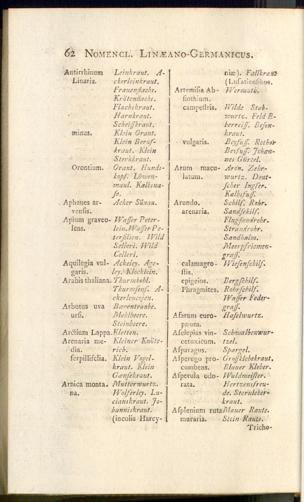 62 NOMENCL. LINÆANO-GERMANICUS.
Antirrhinum Leinkraut. A-
Linaria. ckerleinkraut.
Frauenflachs.
Krötenflachs.
Flachskraut.
Harnkraut.
Scheißkraut.
minus. Klein Orant.
Klein Beruf-
kraut. Klein
Sterkkraut.
Orontium. Orant. Hunds-
kopf. Löwen-
maul. Kalbsna-
se.
Aphanes ar- Acker Sinau.
vensis.
Apium graveo- Wasser Peter-
lens. lein. Wasser Pe-
tersilien. Wild
Selleri. Wild
Celleri.
Aquilegia vul- Ackeley. Age-
garis. ley. Klöcklein.
Arabis thaliana. Thurnkohl.
Thurnsenf. A-
ckerleucojen.
Arbutus uva Bärentraube.
ursi. Mehlbeere.
Steinbeere.
Arctium Lappa. Kletten.
Arenaria me- Kleiner Knöte-
dia. rich.
serpillifolia. Klein Vogel-
kraut. Klein
Gansekraut.
Arnica monta- Mutterwurz.
na. Wolferley. Lu-
cianskraut. Jo-
hanniskraut.
(incolis Harcy-
niæ). Fallkraut
(Lusatiensibus.
Artemisia Ab- Wermuth.
sinthium.
campestris. Wilde Stab-
wurtz. Feld B-
Besen-
kraut.
vulgaris. Beyfuß. Rother
Beyfuß. Johan-
nes Gürtel.
Arum macu- Aron. Zehr-
latum. wurtz. Deut-
scher Ingfer.
Kalbsfuß.
Arundo. Schilf. Rohr.
arenaria. Sandschilf.
Flugsandrohr.
Strandrohr.
Sandhalm.
Meerpfriemen-
graß.
calamagro- Wiesenschilf.
stis.
epigeios. Bergschilf.
Phragmites. Rohrschilf.
Wasser Feder-
graß.
Asarum euro- Haselwurtz.
pæum.
Asclepias vin- Schwalbenwur-
cetoxicum. tzel.
Asparagus. Spargel.
Asperugo pro- Großklebekraut.
cumbens. Blauer Kleber.
Asperula odo- Waldmeister.
rata. Hertzensfreu-
de. Sternleber-
kraut.
Asplenium ruta Mauer Raute.
muraria. Stein Raute.
Tricho-